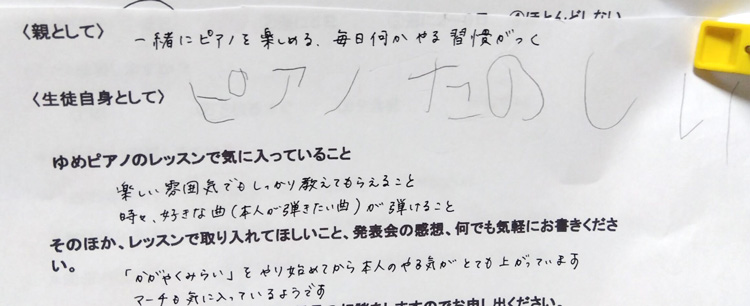 ④ほとんどしない
〈親として〉 一緒にピアノを楽しめる、毎日何かやる習慣がつく
〈生徒自身として〉 ピアノ たのしい
ゆめピアノのレッスンで気に入っていること
楽しい雰囲気でもしっかり教えてもらえること
時々、好きな曲(本人が弾きたい曲)が弾けること
そのほか、レッスンで取り入れてほしいこと、発表会の感想、何でも気軽にお書きくださ
い。
「かがやくみらい」をやり始めてから本人のやる気がとても上がっています
マーチも気に入っているようです
ますのでお申し出ください。